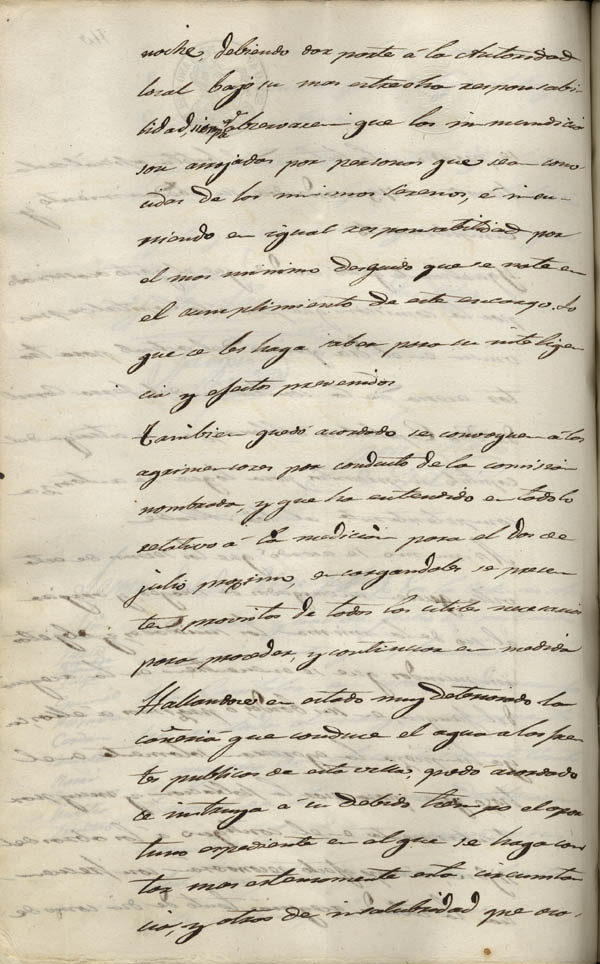 noche, debiendo dar parte á la Autoridad
local bajo su mas estrecha responsabi-
lidad, siempre que observacen que las inmundicias
son arrojadas por personas que sean cono-
cidas de los mismos serenos, é incu-
rriendo en igual responsabilidad por
el mas minimo descuido que se note en
el cumplimiento de este encargo. Lo
que se les haga saber para su inteligen-
cia y efectos prevenidos
Tambien quedó acordado se convoquen á los
agrimensores por conducto de la comision
nombrada, y que ha entendido en todo lo
relativo á la medicion para el dos de
julio procsimo, encargandoles se presen-
ten provistos de todos los utiles necesarios
para proceder, y continuar en medida
Hallandose en estado muy deteriorado la
cañeria que conduce el agua a las fuen-
tes publicas de esta villa, quedó acordado
se instruya á su debido tiempo el opor-
tuno espediente en el que se haga cons-
tar mas estensamente esta circunstan-
cia, y otras de insalubridad que oca-